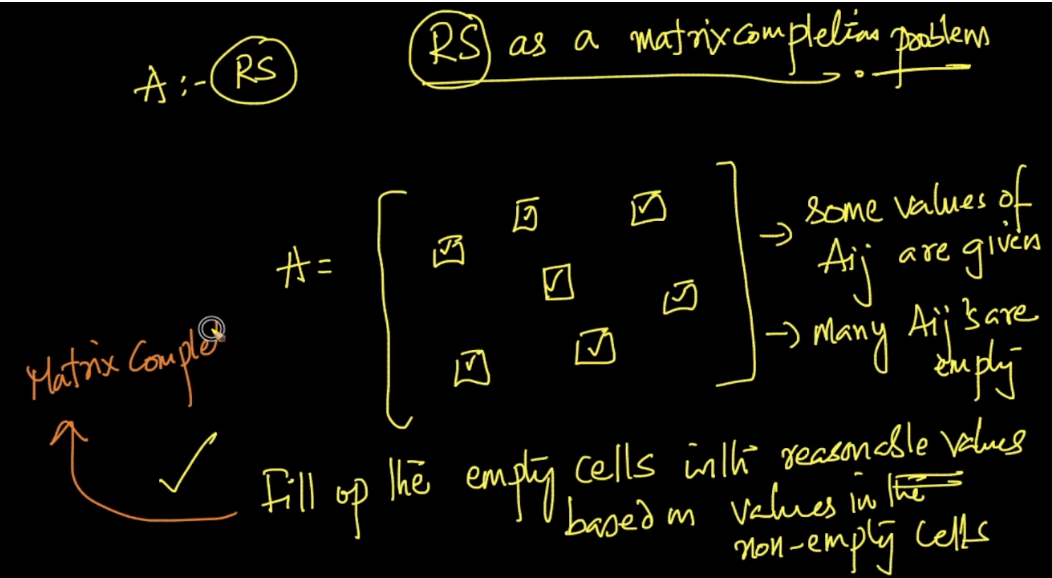 RS as a matrix completion problem
A :- RS
A =
→ some values of
Aij are given
→ many Aij's are
empty
Matrix Comple
Fill up the empty cells with reasonable values
based on values in the
non-empty cells